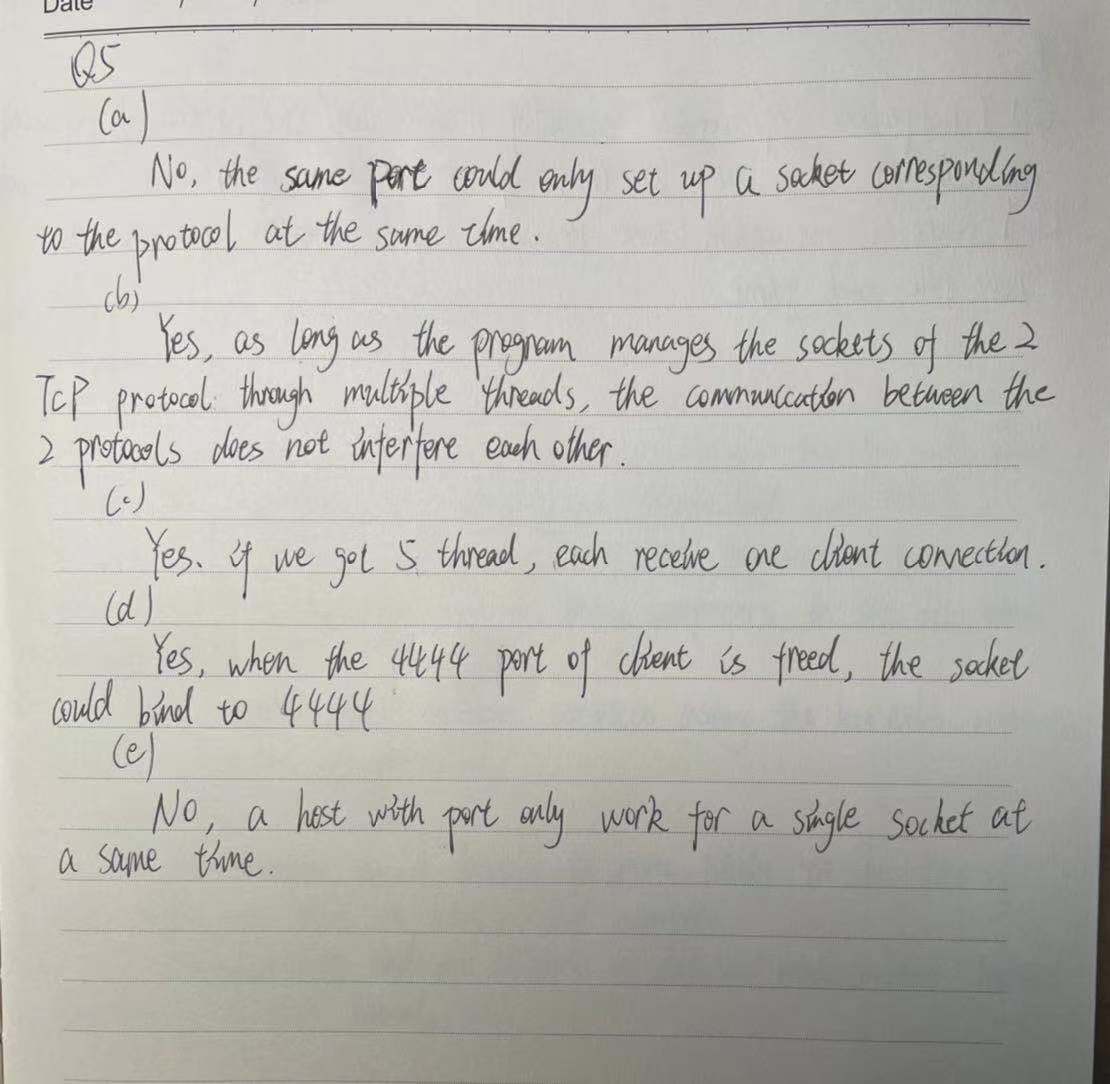 Date
Q5
(a)
No, the same port could only set up a socket corresponding
to the protocol at the same time.
(b)
Yes, as long as the program manages the sockets of the 2
TCP protocol through multiple threads, the communication between the
2 protocols does not interfere each other.
(c)
Yes. if we got 5 thread, each receive one client connection.
(d)
Yes, when the 4444 port of client is freed, the socket
could bind to 4444
(e)
No, a host with port only work for a single socket at
a same time.